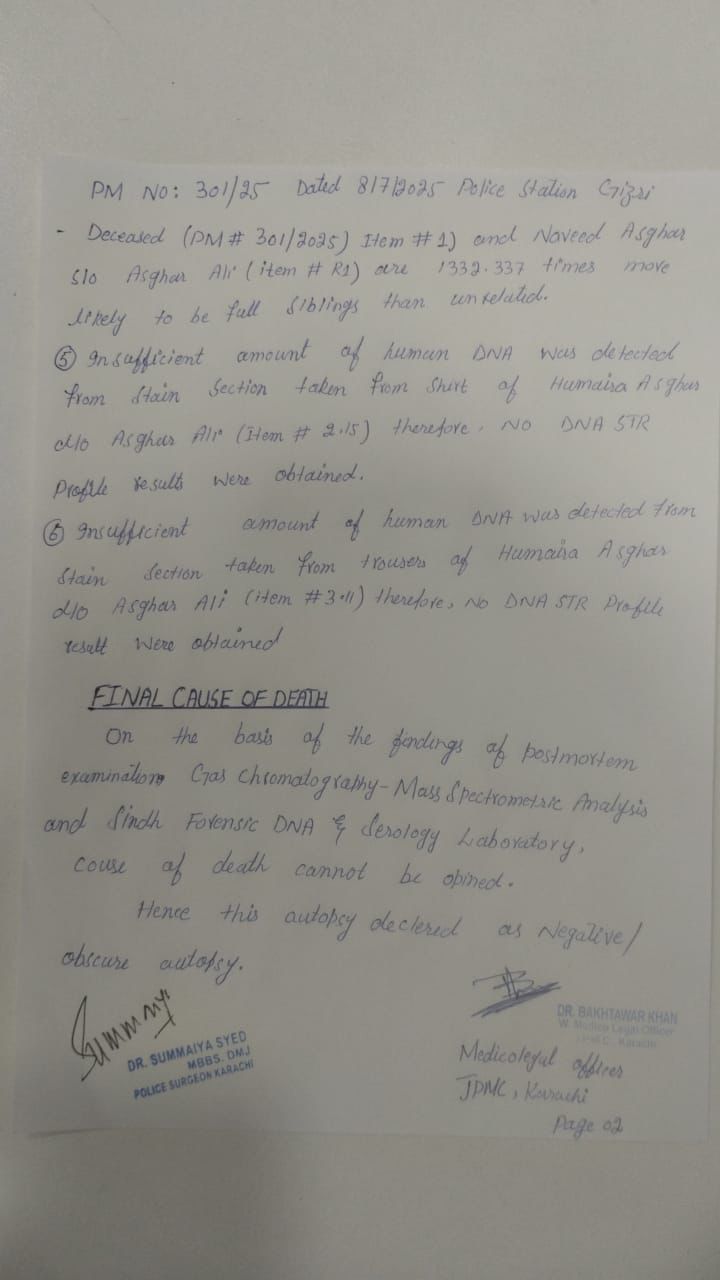 PM NO: 301/25 Dated 8/7/2025 Police Station Gizri
- Deceased (PM# 301/2025) Item #1) and Naveed Asghar
s/o Asghar Ali (item # R1) are 1332.337 times more
likely to be full siblings than unrelated.
⑤ Insufficient amount of human DNA was detected
from stain section taken from shirt of Humaira Asghar
d/o Asghar Ali (Item # 2.15) therefore, NO DNA STR
Profile results were obtained.
⑥ Insufficient amount of human DNA was detected from
stain section taken from trousers of Humaira Asghar
d/o Asghar Ali (item #3.11) therefore, NO DNA STR Profile
result were obtained
FINAL CAUSE OF DEATH
On the basis of the findings of postmortem
examination, Gas Chromatography-Mass Spectrometric Analysis
and Sindh Forensic DNA & Serology Laboratory,
couse of death cannot be opined.
Hence this autopsy declered as Negative/
obscure autopsy.
Summaiya
DR. SUMMAIYA SYED
MBBS. DMJ
POLICE SURGEON KARACHI
DR. BAKHTAWAR KHAN
W. Medico Legal Officer
J.P.M.C., Karachi
Medicolegal officer
JPMC, Karachi
Page 02